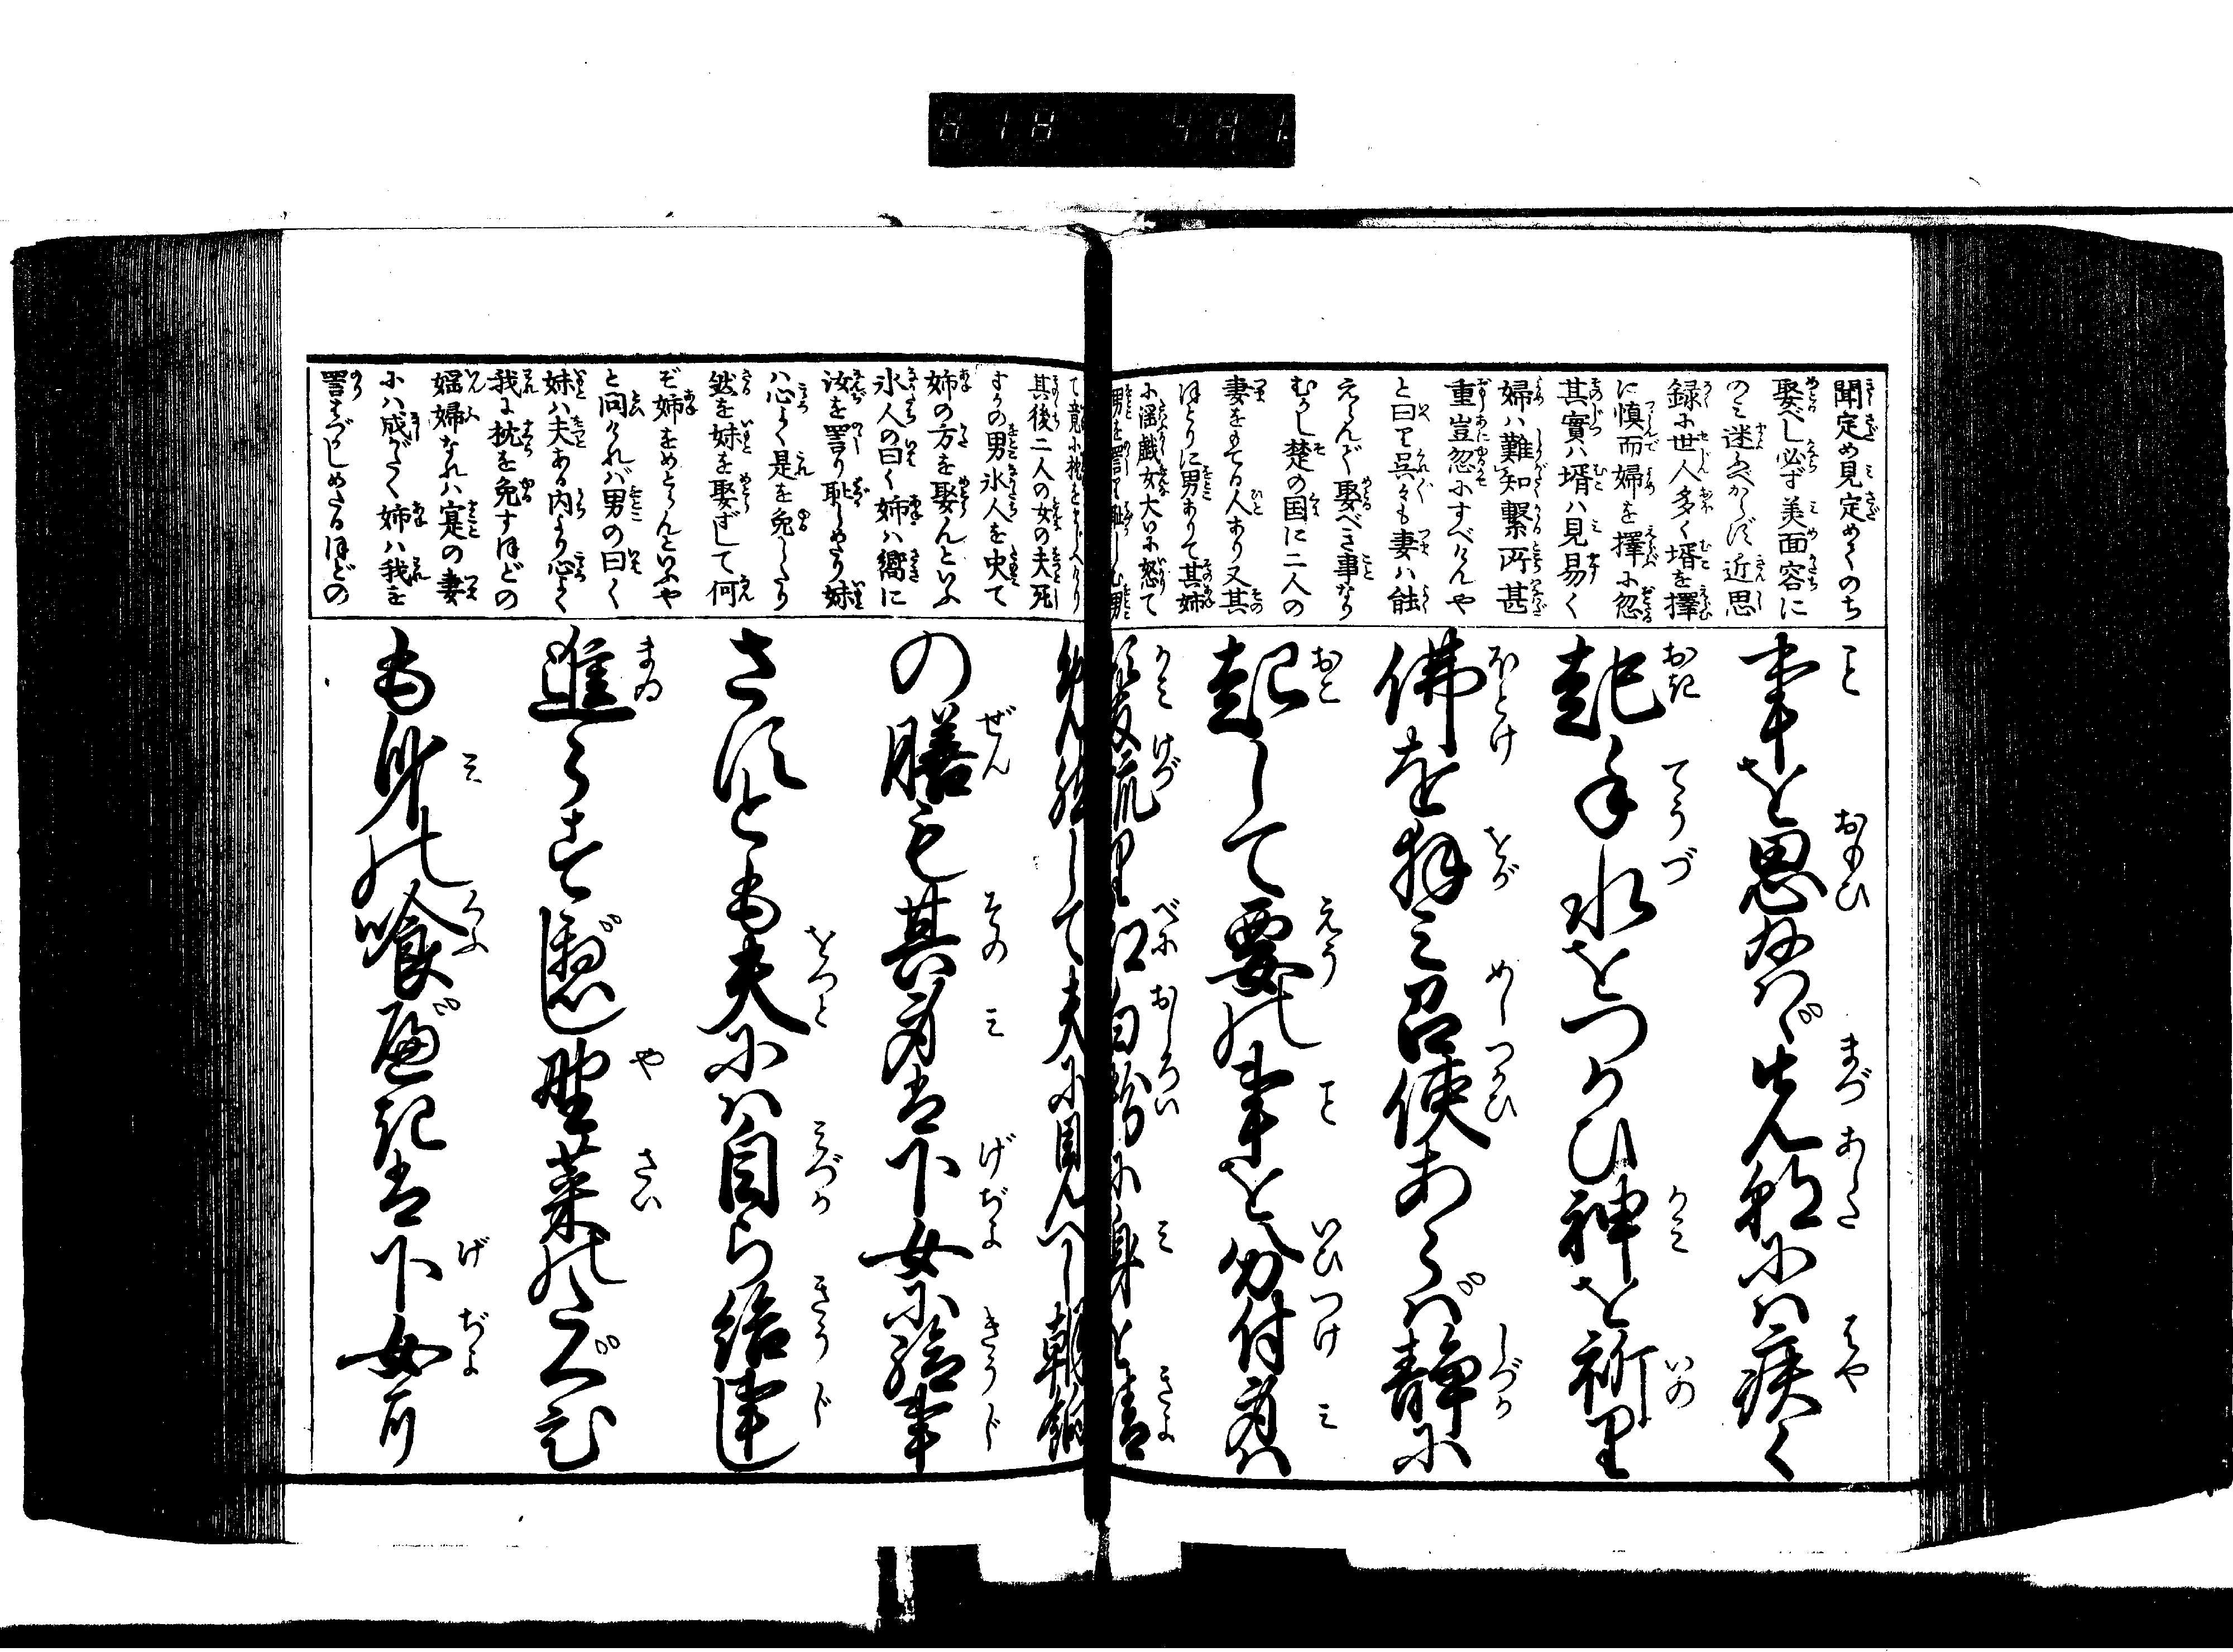 聞定め見定めてのち
娶べし必ず美面容に
のミ迷ふべからず近思
録に世人多く壻を擇
に慎而婦を擇に忽
其實ハ壻ハ見易く
婦ハ難知繋所甚
重豈忽にすべけんや
と曰り呉々も妻ハ能
えらんで娶べき事なり
むかし楚の国に二人の
妻をもてる人あり又其
ほとりに男ありて其姉
に淫戯女大いに怒て
男を詈り恥しむ男
其後二人の女の夫死
すかの男氷人を央て
姉の方を娶んといふ
氷人の曰く姉ハ嚮に
汝を詈り恥しめたり妹
ハ心よく是を免したり
然を妹を娶ずして何
ぞ姉をめとらんといふや
と問けれバ男の曰く
妹ハ夫ある内より心よく
我に枕を免すほどの
婬婦なれハ寔の妻
にハ成がたく姉ハ我を
詈はづかしめたるほどの
事を思ひなバまづ先朝にハ疾く
起手水をつかひ神を祈り
佛を拝ミ召使あらバ静に
起して要の事を分付身ハ
髪梳り紅白粉に身を清
して夫に目見へし朝餉
の膳も其身は下女に給事
さすとも夫にハ自ら給事
進らすべし野菜のたぐひ
も身の喰べきは下女